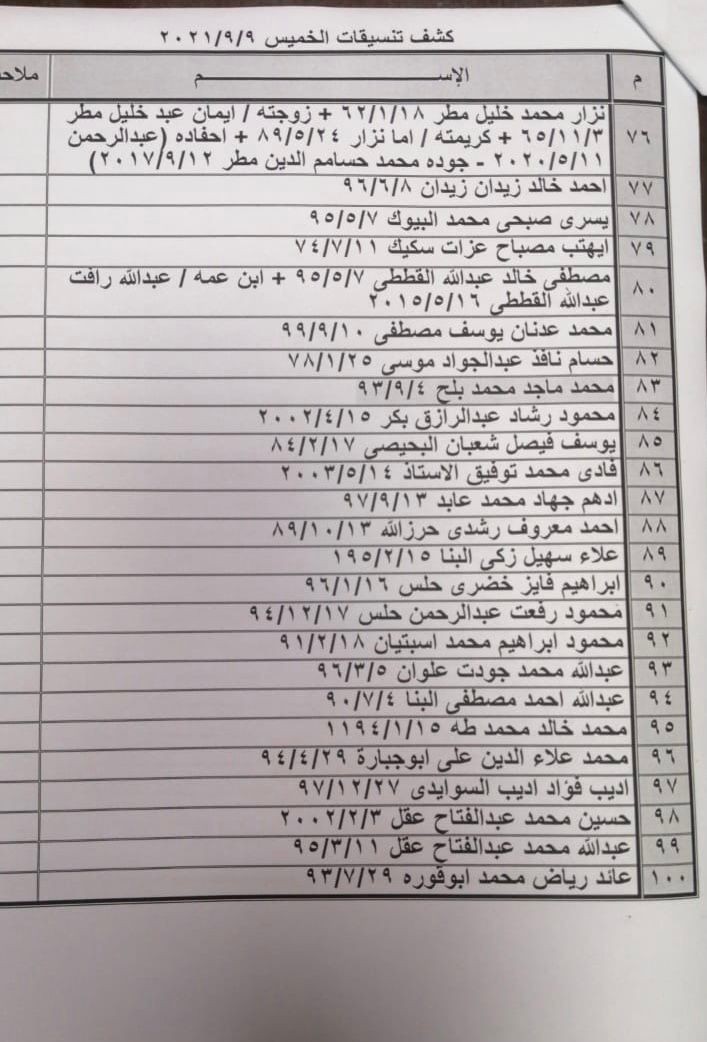 كشف تنسيقات الخميس ٢٠٢١/٩/٩
م الإســـــم ملاح
٧٦ نزار محمد خليل مطر ٦٢/١/١٨ + زوجته / ايمان عبد خليل مطر
٦٥/١١/٣ + كريمته / اما نزار ٨٩/٥/٢٤ + احفاده (عبدالرحمن
٢٠٢٠/٥/١١ - جوده محمد حسامم الدين مطر ٢٠١٧/٩/١٢)
٧٧ احمد خالد زيدان زيدان ٩٦/٦/٨
٧٨ يسرى صبحى محمد البيوك ٩٥/٥/٧
٧٩ ايهتب مصباح عزات سكيك ٧٤/٧/١١
٨٠ مصطفى خالد عبدالله القططى ٩٥/٥/٧ + ابن عمه / عبدالله رافت
عبدالله القططى ٢٠١٥/٥/١٦
٨١ محمد عدنان يوسف مصطفى ٩٩/٩/١٠
٨٢ حسام نافذ عبدالجواد موسى ٧٨/١/٢٥
٨٣ محمد ماجد محمد بلح ٩٣/٩/٤
٨٤ محمود رشاد عبدالرازق بكر ٢٠٠٢/٤/١٥
٨٥ يوسف فيصل شعبان البحيصى ٨٤/٢/١٧
٨٦ فادى محمد توفيق الاستاذ ٢٠٠٣/٥/١٤
٨٧ ادهم جهاد محمد عابد ٩٧/٩/١٣
٨٨ احمد معروف رشدى حرزالله ٨٩/١٠/١٣
٨٩ علاء سهيل زكى البنا ١٩٥/٢/١٥
٩٠ ابراهيم فايز خضرى حلس ٩٦/١/١٦
٩١ محمود رفعت عبدالرحمن حلس ٩٤/١٢/١٧
٩٢ محمود ابراهيم محمد اسبتيان ٩١/٢/١٨
٩٣ عبدالله محمد جودت علوان ٩٦/٣/٥
٩٤ عبدالله احمد مصطفى البنا ٩٠/٧/٤
٩٥ محمد خالد محمد طه ١١٩٤/١/١٥
٩٦ محمد علاء الدين على ابوجبارة ٩٤/٤/٢٩
٩٧ اديب فؤاد اديب السوايدى ٩٧/١٢/٢٧
٩٨ حسين محمد عبدالفتاح عقل ٢٠٠٢/٢/٣
٩٩ عبدالله محمد عبدالفتاح عقل ٩٥/٣/١١
١٠٠ عائد رياض محمد ابوقوره ٩٣/٧/٢٩